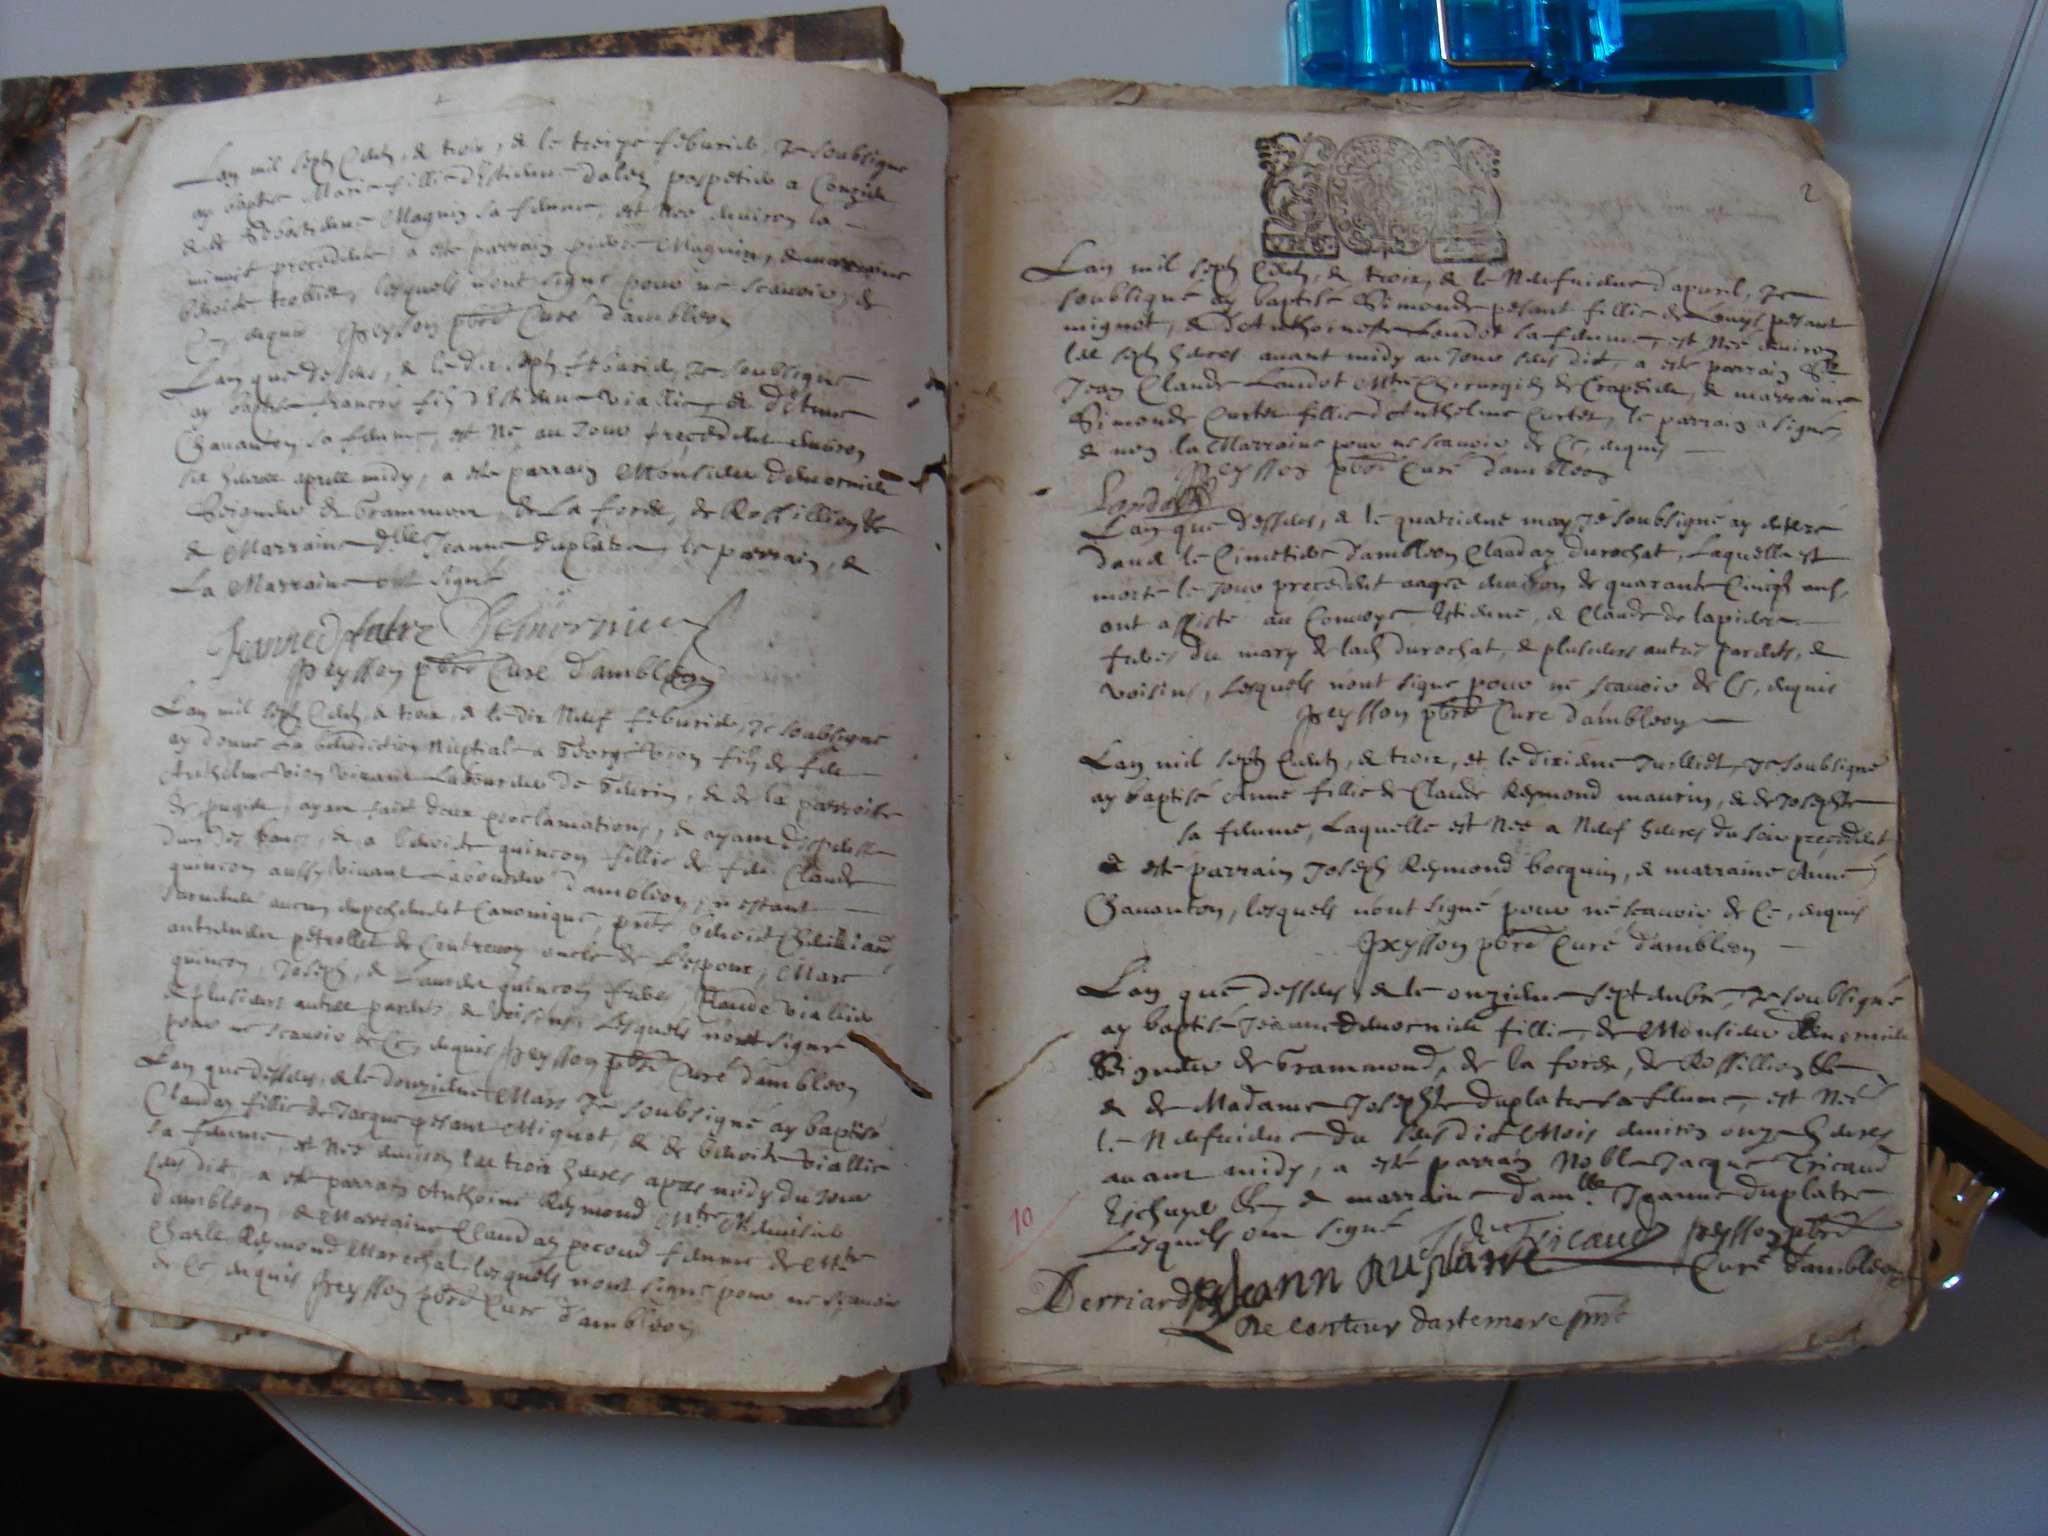 Lan mil sept Cents, & trois, & le treize feburier, Je soubsigne
ay baptise Marie fillie d'Estienne
& de Sebastienne Magnin sa femme, est Née enuiron la
minuit precedente, a esté parrain pierre Magnin, & marraine
benoite lesquels nont signé pour ne scauoir, de
Ce, enquis Peysson pbre Curé d'ambleon
Lan que dessus, & le dix sept feburier, Je soubsigné
ay baptisé francois fils d'Estienne Viallier, & d'Etienne
Chauanton sa femme, est Né au Jour precedent enuiron
six heures apres midy, a esté parrain Monsieur demornieu
Seigneur de Grammon, de La forde, de Rossillion &c
& Marraine d.lle Jeanne duplatre, le parrain, &
La Marraine ont signé
Jeanne duplatre Demornieu
Peysson pbre Curé d'ambleon
Lan mil sept Cents, & trois, & le dix Neuf feburier, Je soubsigné
ay donné la benediction Nuptiale a George Vion fils de feu
Anthelme Vion Viuant Laboureur de & de la parroisse
de pugieu, ayant fait deux proclamations, & ayant dispense
dun des bans, & a benoite quincon fillie de feu Claude
quincon aussy Viuant Laboureur d'ambleon, n'estant
suruenu aucun empechement Canonique, pnts benoit
petrollet de Contreuoz oncle de l'espoux, Marc
quincon, Joseph, & Laurent quincon freres Claude Viallier
& plusieurs autres parents, & Voisins, Lesquels nont signé
pour ne scauoir de Ce, enquis Peysson pbre Curé d'ambleon
Lan que dessus, & le douzieme Mars Je soubsigné ay baptisé
Clauday fillie de Jacque pesant Mignot, & de benoite Viallier
sa femme, est Née enuiron les trois heures apres midy du Jour
sus dit, a esté parrain Anthoine Reymond Mtre Menuisier
d'ambleon, & Marraine Clauday pecoud femme de Mtre
Charle Reymond Marechal, lesquels nont signé pour ne scauoir
de Ce, enquis Peysson pbre Curé d'ambleon
2
Lan mil sept Cents, & trois, & le Neufuieme d'apuril, Je
soubsigné ay baptisé Simonde pesant fillie de Louys pesant
mignot, & d'Anthoinette Landot sa femme, est Née enuiron
les sept heures auant midy au Jour sus dit, a esté parrain Sr
Jean Claude Landot Mtre Chirurgien de Crapieu, & marraine
Simonde Curtet fillie d'Anthelme Curtet, le parrain a signé,
& non la Marraine pour ne scauoir de Ce, enquis
Peysson pbre Curé d'ambleon
Landot
Lan que dessus, & le quatrieme may Je soubsigné ay enterré
dans le Cimetiere d'ambleon Clauday durochat, Laquelle est
morte le Jour precedent aagee enuiron de quarante Cinq ans,
ont assisté au Conuoye Estienne, & Claude de lapierre
freres du mary de lad durochat, & plusieurs autres parents, &
Voisins, Lesquels n'ont signé pour ne scauoir de Ce, enquis
Peysson pbre Curé d'ambleon
Lan mil sept Cents, & trois, et le dixieme Juilliet, Je soubsigné
ay baptisé Anne fillie de Claude Reymond maurin, & de Josephte
sa femme, Laquelle est Née a Neuf heures du soir precedent
a esté parrain Joseph Reymond bocquin, & marraine Anne
Chauanton, lesquels n'ont signé pour ne scauoir de Ce, enquis
Peysson pbre Curé d'ambleon
Lan que dessus, & le onzieme septembre, Je soubsigné
ay baptisé Jeanne demornieu fillie, de Monsieur demornieu
Seigneur de Grammond, de la forde, de Rossillion &c
& de Madame Josephte duplatre sa femme, est Née
le Neufuieme du sus dit Mois enuiron onze heures
auant midy, a esté parrain Noble Jacque Tricaud
Eschuyer &c, & marraine dam.lle Jeanne duplatre
Lesquels ont signé Tricaud Peysson pbre
Jeann duplatre Curé d'ambleon
Derriard
De conteur dartemare pnt
10